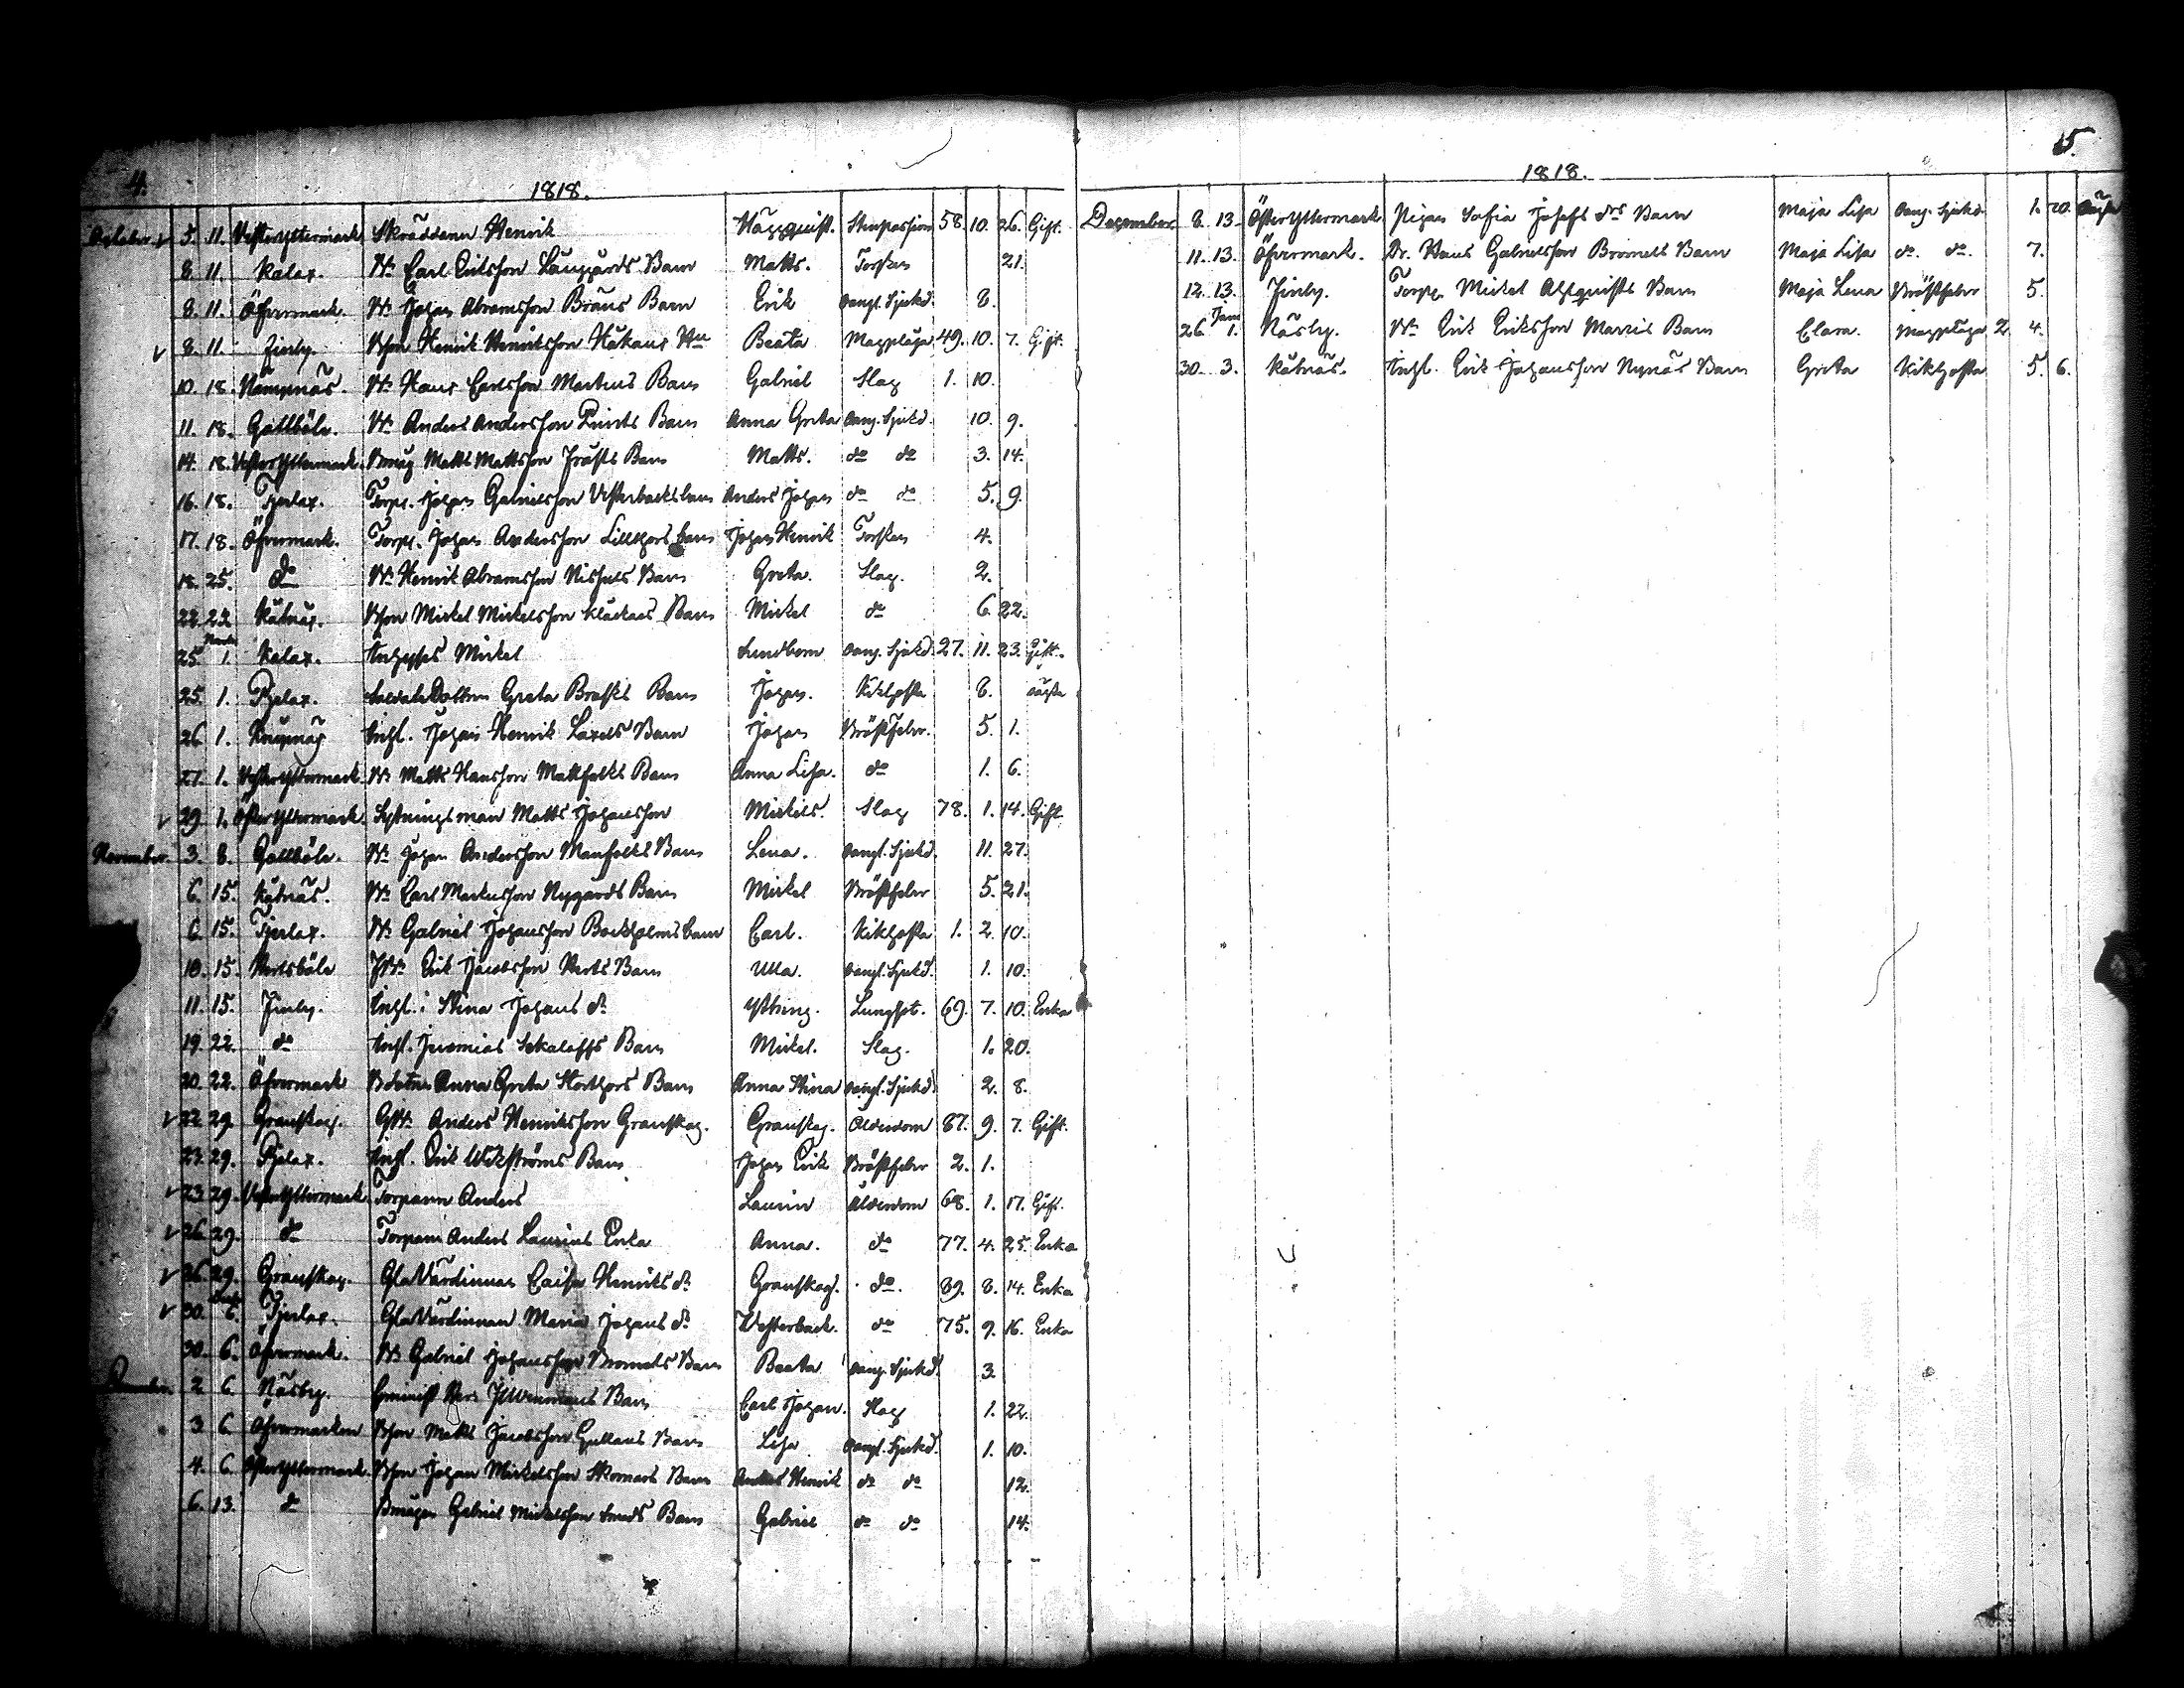 4.
1818.
October 5. 11. Vesteryttermark Skräddaren Henrik Häggquist. 58. 10. 26. Gift.
8. 11. Kalax. Bd. Carl Ericsson Långgårds Barn Matts. Torsken 21.
8. 11. Öfvermark. Bd. Johan Abramsson Bräus Barn Erik oangf. Sjukd. 8.
8. 11. Finby. Bson Henrik Henriksson Håkans Beata Magplåga 49. 10. 7. Gift.
10. 18. Nämpnäs. Bd. Hans Carlsson Martens Barn Gabriel Slag 1. 10.
11. 18. Gottböle. Bd. Anders Andersson Barn Anna Greta oang. Sjukd. 10. 9.
14. 18. Vesteryttermark. Matts Mattsson Barn Matts. do do 3. 14.
16. 18. Tjerlax. Torp. Johan Gabrielsson Vesterbacks barn Anders Johan do do 5. 9.
17. 18. Öfvermark. Torp. Johan Andersson Lillthors barn Johan Henrik Torsken 4.
18. 25. do Bd. Henrik Abramsson Nissuls Barn Greta. Slag. 2.
22. 25. Kåtnäs. Bson Mickel Mickelsson Klåckars Barn Mickel do 6. 22.
25. 1. Kalax. Mickel Lundbom oang. Sjukd. 27. 11. 23. Gift.
25. 1. Pjelax. Greta Brasks Barn Johan. Kikhosta 8. oägta
26. 1. Knåpnäs Inhs. Johan Henrik Laxells Barn Johan Bröstfeber. 5. 1.
27. 1. Vesteryttermark Bd. Matts Hansson Mattfolks Barn Anna Lisa. do 1. 6.
29. 1. Österyttermark Sytningsman Matts Johansson Mickels. Slag 78. 1. 14. Gift
November. 3. 8. Gottböle. Bd. Johan Andersson Manfolks Barn Lena. oangf. Sjukd. 11. 27.
6. 15. Kåtnäs. Bd. Carl Markusson Nygårds Barn Mickel Bröstfeber 5. 21.
6. 15. Tjerlax. Bd. Gabriel Johansson Bockholms barn Carl. Kikhosta 1. 2. 10.
10. 15. Norrböle Erik Jacobsson Barn Ulla. oangf. Sjukd. 1. 10.
11. 15. Finby. Inhs. Stina Johans dr Lungsot. 69. 7. 10. Enka
19. 22. do Inhs. Jeremias Barn Mickel. Slag. 1. 20.
20. 22. Öfvermark Anna Greta Storthors Barn Anna Stina oangf. Sjukd. 2. 8.
22. 29. Granskog. Anders Henriksson Granskog. Granskog. Ålderdom 87. 9. 7. Gift.
23. 29. Pjelax. Inhs. Erik Wikströms Barn Johan Erik Bröstfeber 2. 1.
23. 29. Vesteryttermark. Torparen Anders Laurin Ålderdom 68. 1. 17. Gift.
26. 29. do Torparen Anders Laurins Enka Anna. do 77. 4. 25. Enka
26. 29. Granskog. Gla Värdinnan Caisa Henriks dr Granskog. do. 89. 8. 14. Enka
30. 6. Tjerlax. Gla Värdinnan Maria Johans dr Westerback. do 75. 9. 16. Enka
30. 6. Öfvermark. Bd. Gabriel Johansson Bromels Barn Beata oang. Sjukd. 3.
2. 6. Näsby. Barn Carl Johan. Slag 1. 22.
3. 6. Öfvermarken Bson Matts Jacobsson Gullans Barn Lisa oangf. Sjukd. 1. 10.
4. 6. Österyttermark. Bson Johan Mickelsson Skomars Barn Anders Henrik do do 12.
6. 13. do Gabriel Mickelsson Smeds Barn Gabriel do do 14.
5.
1818.
December 8. 13. Österyttermark Pigan Sofia Josefs drs Barn Maja Lisa oang. Sjukd. 1. 20. oägta
11. 13. Öfvermark. Dr. Hans Gabrielsson Bromels Barn Maja Lisa do. do. 7.
12. 13. Finby. Torp. Mickel Ahlquists Barn Maja Lena Bröstfeber 5.
Janu
26. 1. Näsby. Bd. Erik Eriksson Barn Clara. Magplåga 2. 4.
30. 3. Kåtnäs. Inhs. Erik Johansson Nynäs Barn Greta Kikhosta 5. 6.